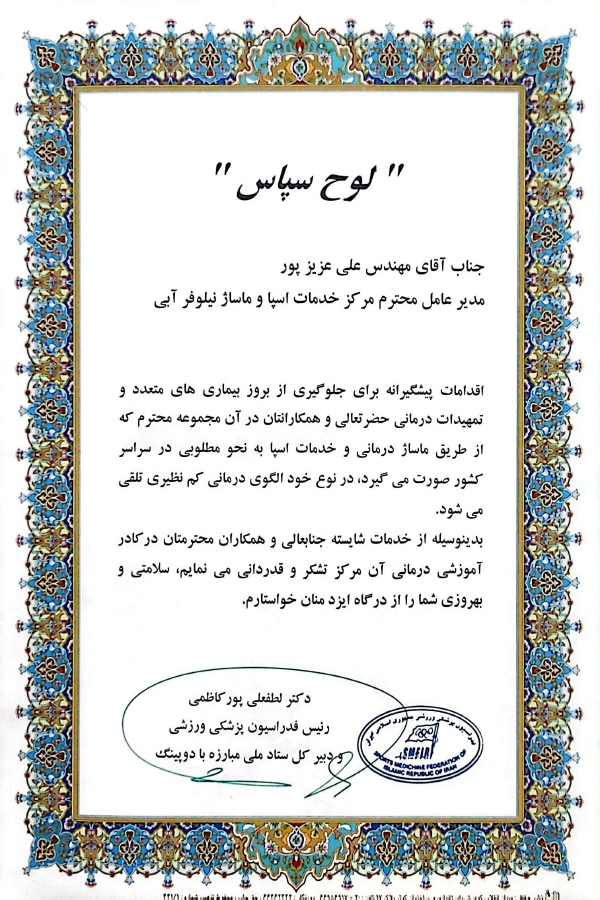 " لوح سپاس "
جناب آقای مهندس علی عزیز پور
مدیر عامل محترم مرکز خدمات اسپا و ماساژ نیلوفر آبی
اقدامات پیشگیرانه برای جلوگیری از بروز بیماری های متعدد و
تمهیدات درمانی حضرتعالی و همکارانتان در آن مجموعه محترم که
از طریق ماساژ درمانی و خدمات اسپا به نحو مطلوبی در سراسر
کشور صورت می گیرد، در نوع خود الگوی درمانی کم نظیری تلقی
می شود.
بدینوسیله از خدمات شایسته جنابعالی و همکاران محترمتان درکادر
آموزشی درمانی آن مرکز تشکر و قدردانی می نمایم، سلامتی و
بهروزی شما را از درگاه ایزد منان خواستارم.
دکتر لطفعلی پورکاظمی
رئیس فدراسیون پزشکی ورزشی
و دبیر کل ستاد ملی مبارزه با دوپینگ
فدراسیون پزشکی ورزشی جمهوری اسلامی ایران
SMFIR
SPORTS MEDICHINE FEDERATION OF
ISLAMIC REPUBLIC OF IRAN